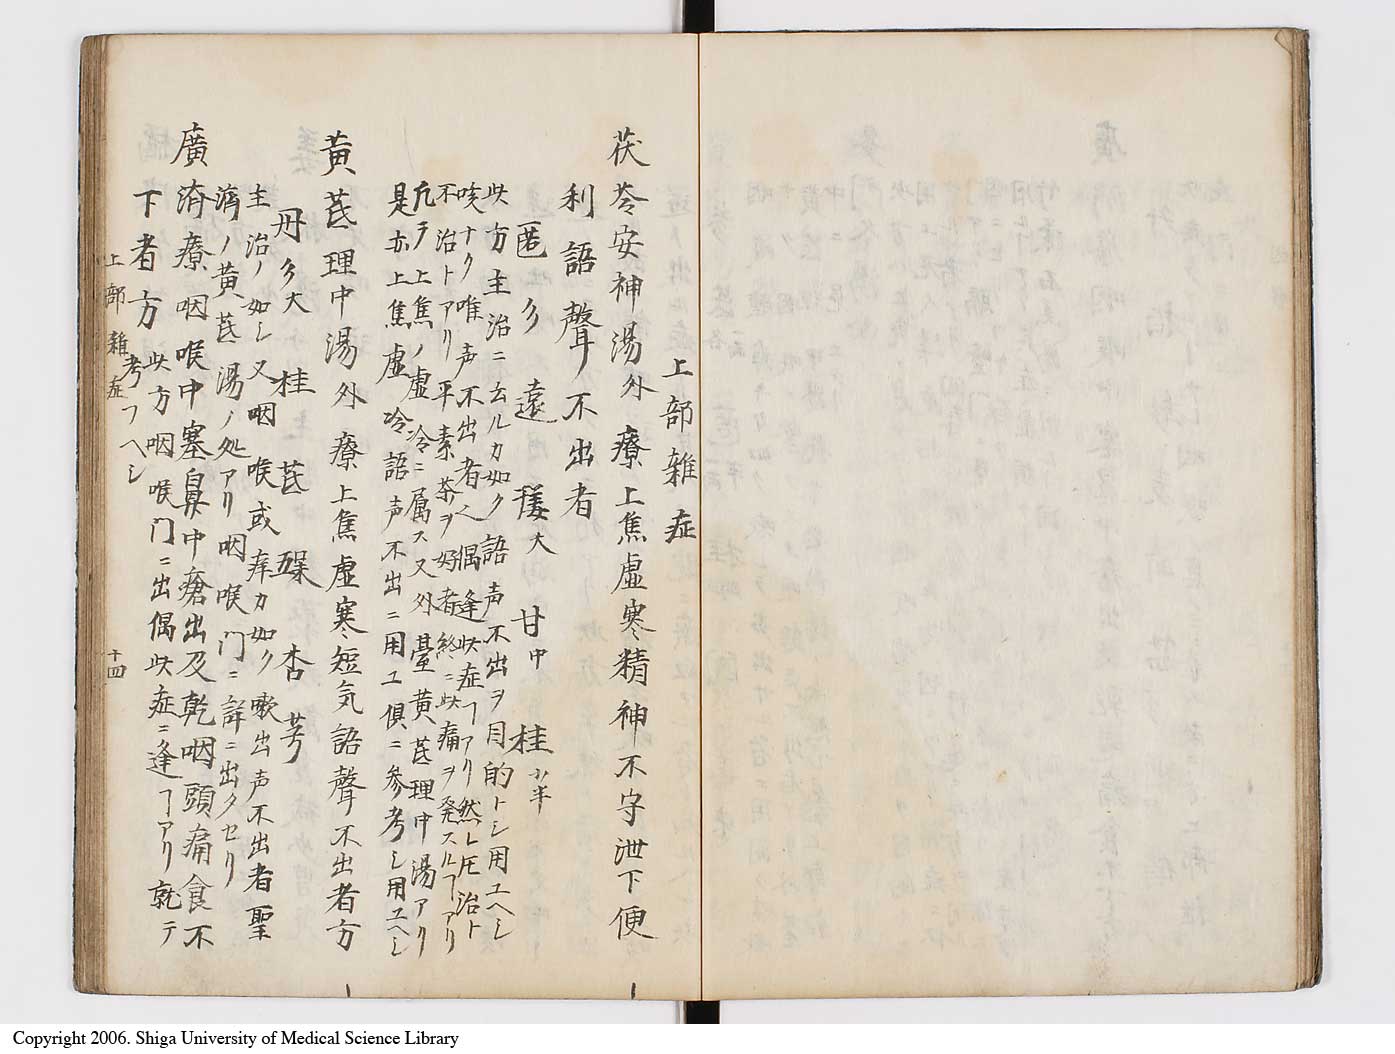 上部雜症
茯苓安神湯外療上焦虚寒精神不守泄下便
利語聲不出者
遠 大 甘中 桂 小半
此方主治ニ云ルカ如ク語声不出ヲ目的トシ用ユヘシ
咳ナク唯声不出者ヘ偶逢此症ヿアリ然レ𪜈治ト
不治トアリ平素茶ヲ好者終ニ此痛ヲ発スルヿアリ
凢テ上焦ノ虚冷ニ属ス又外臺黄芪理中湯アリ
是亦上焦虚冷語声不出ニ用ユ俱ニ参考シ用ユヘシ
黄芪理中湯外療上焦虚寒短気語聲不出者方
丹 大 桂 芪 杏 芍
主治ノ如シ又咽喉或痒カ如ク嗽出声不出者聖
済ノ黄芪湯ノ処アリ咽喉门ニ詳ニ出タセリ
廣済療咽喉中塞鼻中瘡出及乾咽頭痛食不
下者方
此方咽喉门ニ出偶此症ニ逢ヿアリ就テ
考フヘシ
上部雜症
十四
Copyright 2006. Shiga University of Medical Science Library